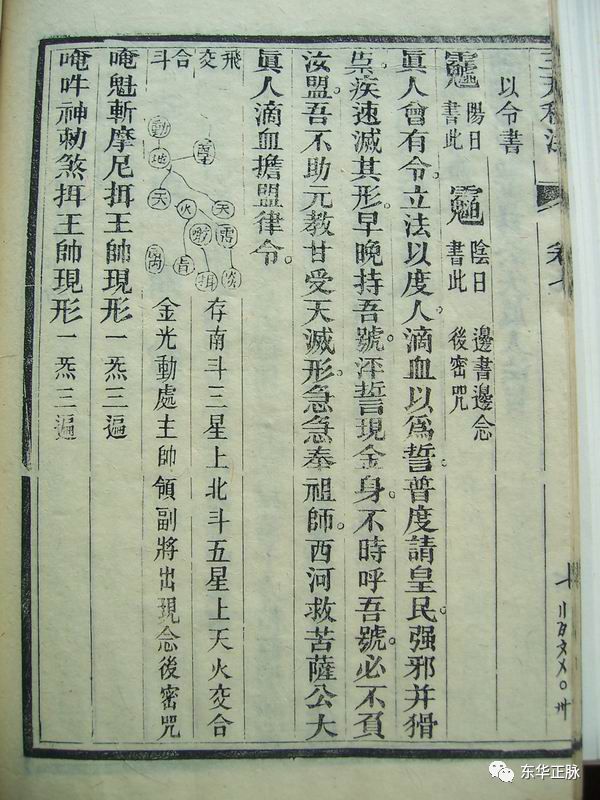 卷七
以令書
陽日書此 陰日書此 邊書邊念後密咒
眞人會有令。立法以度人。滴血以爲誓。普度請皇民。强邪并猾
祟。疾速滅其形。早晚持吾號。泙誓現金身。不時呼吾號。必不負
汝盟。吾不助元教。甘受天滅形。急急奉祖師。西河救苦薩公大
眞人滴血擔盟律令。
飛交合斗
動
地
天
火
天
挕
存南斗三星上北斗五星上天火交合
金光動處主帥領副將出現念後密咒
唵魁斬摩尼挕王帥現形一炁三遍
唵吽神勅煞挕王帥現形一炁三遍
东华正脉